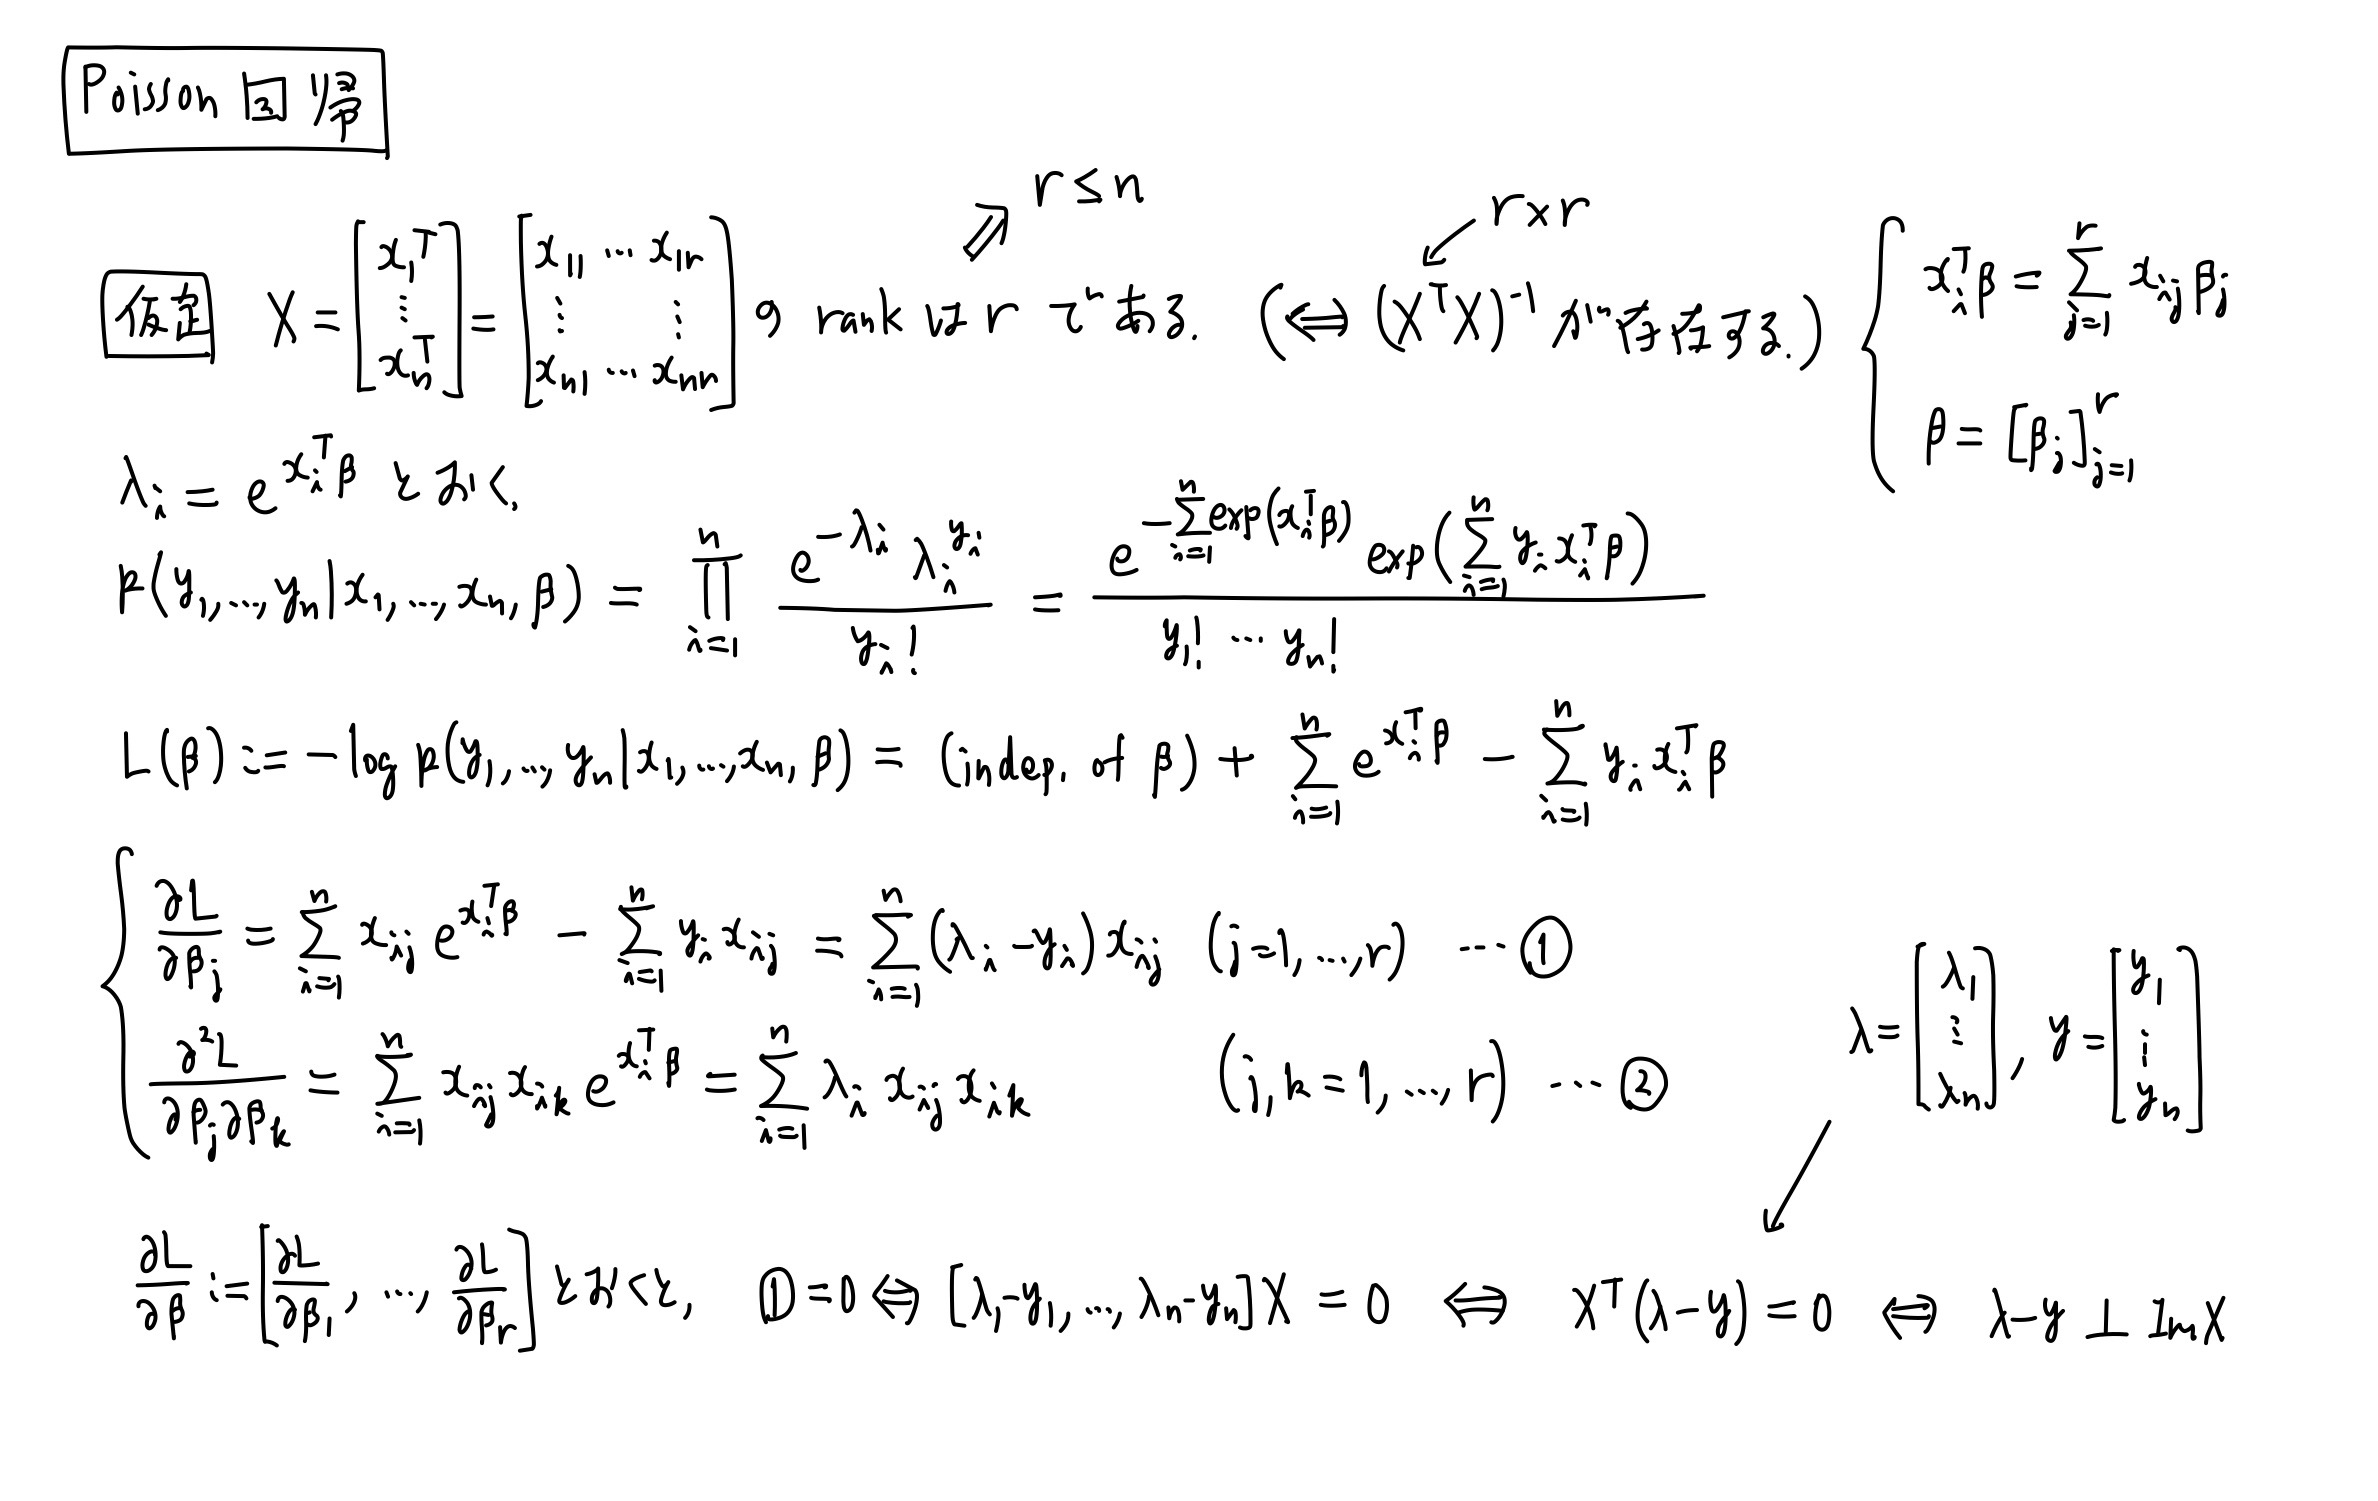 Poisson 回帰
r ≤ n
r×r
仮定 X = [x_1^T ⋮ x_n^T] = [x_{11} ⋯ x_{1r} ⋮ ⋮ x_{n1} ⋯ x_{nr}] の rank は r である. (⇔ (X^T X)^{-1} が存在する.)
{ x_i^T β = Σ_{j=1}^r x_{ij} β_j
β = [β_j]_{j=1}^r
λ_i = e^{x_i^T β} とおく.
p(y_1, …, y_n | x_1, …, x_n, β) = Π_{i=1}^n e^{-λ_i} λ_i^{y_i} / y_i! = e^{-Σ_{i=1}^n exp(x_i^T β)} exp(Σ_{i=1}^n y_i x_i^T β) / y_1! ⋯ y_n!
L(β) := -log p(y_1, …, y_n | x_1, …, x_n, β) = (indep. of β) + Σ_{i=1}^n e^{x_i^T β} - Σ_{i=1}^n y_i x_i^T β
{ ∂L/∂β_j = Σ_{i=1}^n x_{ij} e^{x_i^T β} - Σ_{i=1}^n y_i x_{ij} = Σ_{i=1}^n (λ_i - y_i) x_{ij} (j=1, …, r) ⋯ ①
∂²L/∂β_j∂β_k = Σ_{i=1}^n x_{ij} x_{ik} e^{x_i^T β} = Σ_{i=1}^n λ_i x_{ij} x_{ik} (j, k = 1, …, r) ⋯ ②
λ = [λ_1 ⋮ λ_n], y = [y_1 ⋮ y_n]
∂L/∂β := [∂L/∂β_1, …, ∂L/∂β_r] とおくと, ① = 0 ⇔ [λ_1 - y_1, …, λ_n - y_n] X = 0 ⇔ X^T(λ - y) = 0 ⇔ λ - y ⊥ Im X